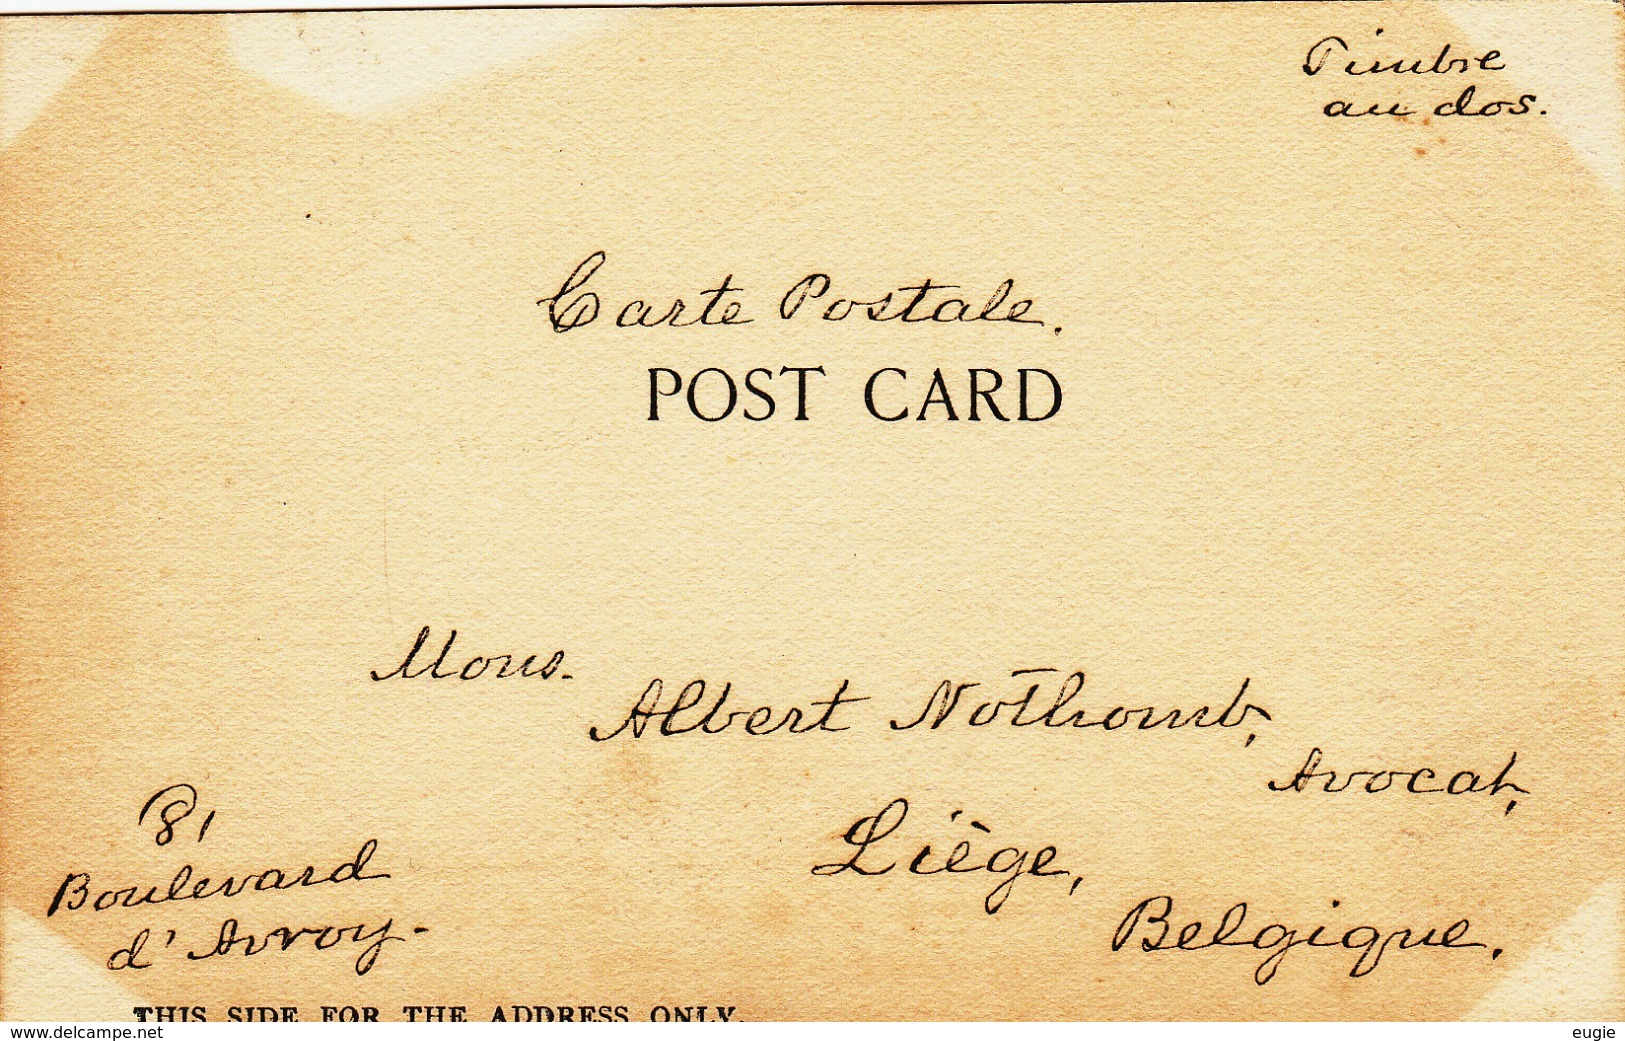 Timbre
au dos.
Carte Postale.
POST CARD
Mons.
Albert Nothomb,
Avocat,
Liège,
Belgique.
8,
Boulevard
d'Avroy.
THIS SIDE FOR THE ADDRESS ONLY.
www.delcampe.net
eugie